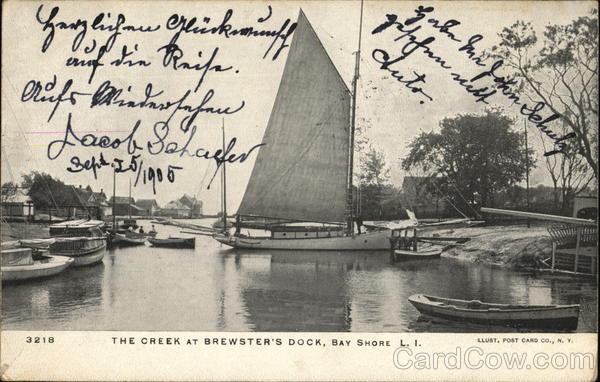 Herzlichen Glückwunsch
auf die Reise.
Aufs Wiedersehen
Jacob Schaefer
Sept. 25/1905
Habe Mrs. John Schulz
gesehen mit
Auto.
3218
THE CREEK AT BREWSTER'S DOCK, BAY SHORE L. I.
ILLUST. POST CARD CO., N. Y.
CardCow.com